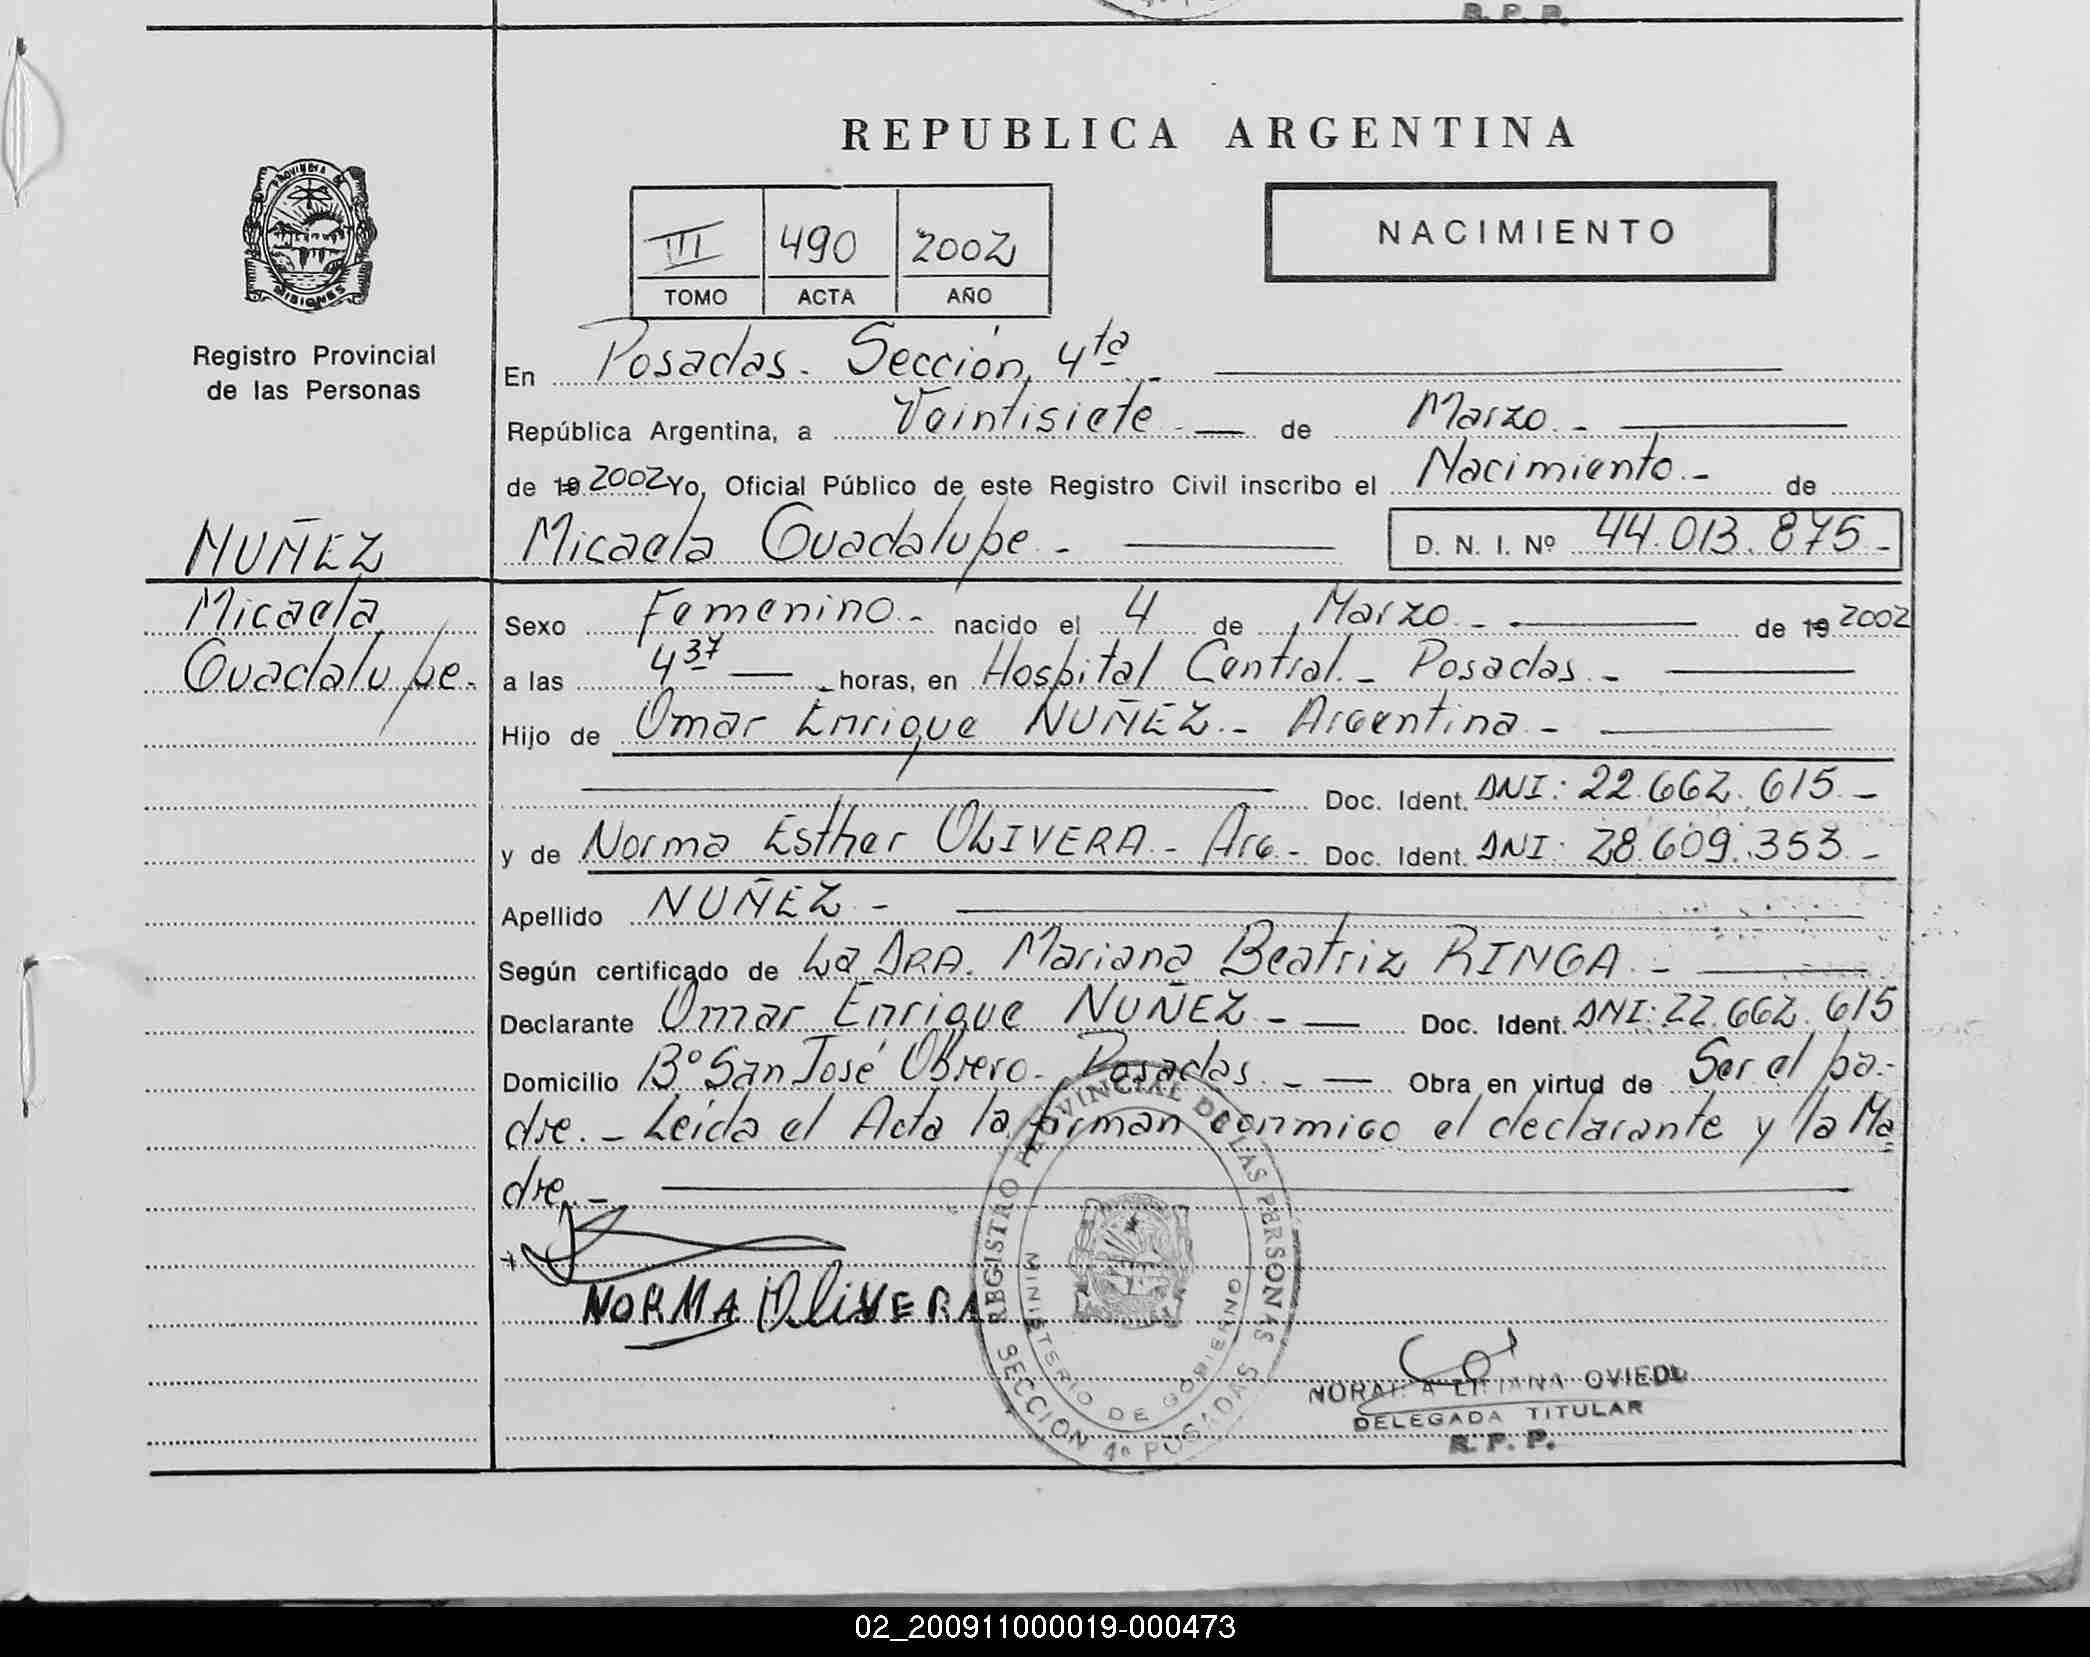 R. P. P.
REPUBLICA ARGENTINA
NACIMIENTO
III 490 2002
TOMO ACTA AÑO
PROVINCIA DE
MISIONES
Registro Provincial
de las Personas
En Posadas. Sección 4ta -
República Argentina, a Veintisiete - de Marzo -
de 19 2002 Yo, Oficial Público de este Registro Civil inscribo el Nacimiento - de
NUÑEZ
Micaela Guadalupe - D. N. I. Nº 44.013.875-
Micaela
Guadalupe.
Sexo Femenino - nacido el 4 de Marzo - de 19 2002
a las 4 37 horas, en Hospital Central - Posadas -
Hijo de Omar Enrique NUÑEZ - Argentina -
Doc. Ident. DNI: 22.662.615 -
y de Norma Esther OLIVERA - Arg - Doc. Ident. DNI: 28.609.353 -
Apellido NUÑEZ -
Según certificado de La DRA. Mariana Beatriz RINGA -
Declarante Omar Enrique NUÑEZ - Doc. Ident. DNI: 22.662.615
Domicilio Bº San José Obrero - Posadas - Obra en virtud de Ser el pa-
dre. - Leida el Acta la firman conmigo el declarante y la Ma
dre. -
NORMA OLIVERA
REGISTRO PROVINCIAL DE LAS PERSONAS
MINISTERIO DE GOBIERNO
SECCION 4ª POSADAS
LILIANA OVIEDO
DELEGADA TITULAR
R. P. P.
02_200911000019-000473